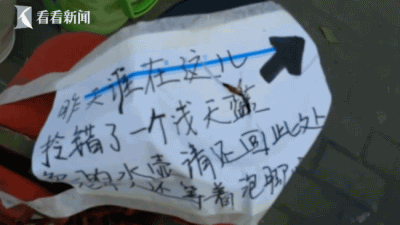 看看新闻
昨天谁在这儿
拎错了一个浅天蓝
水壶 请还回此处
还等着泡